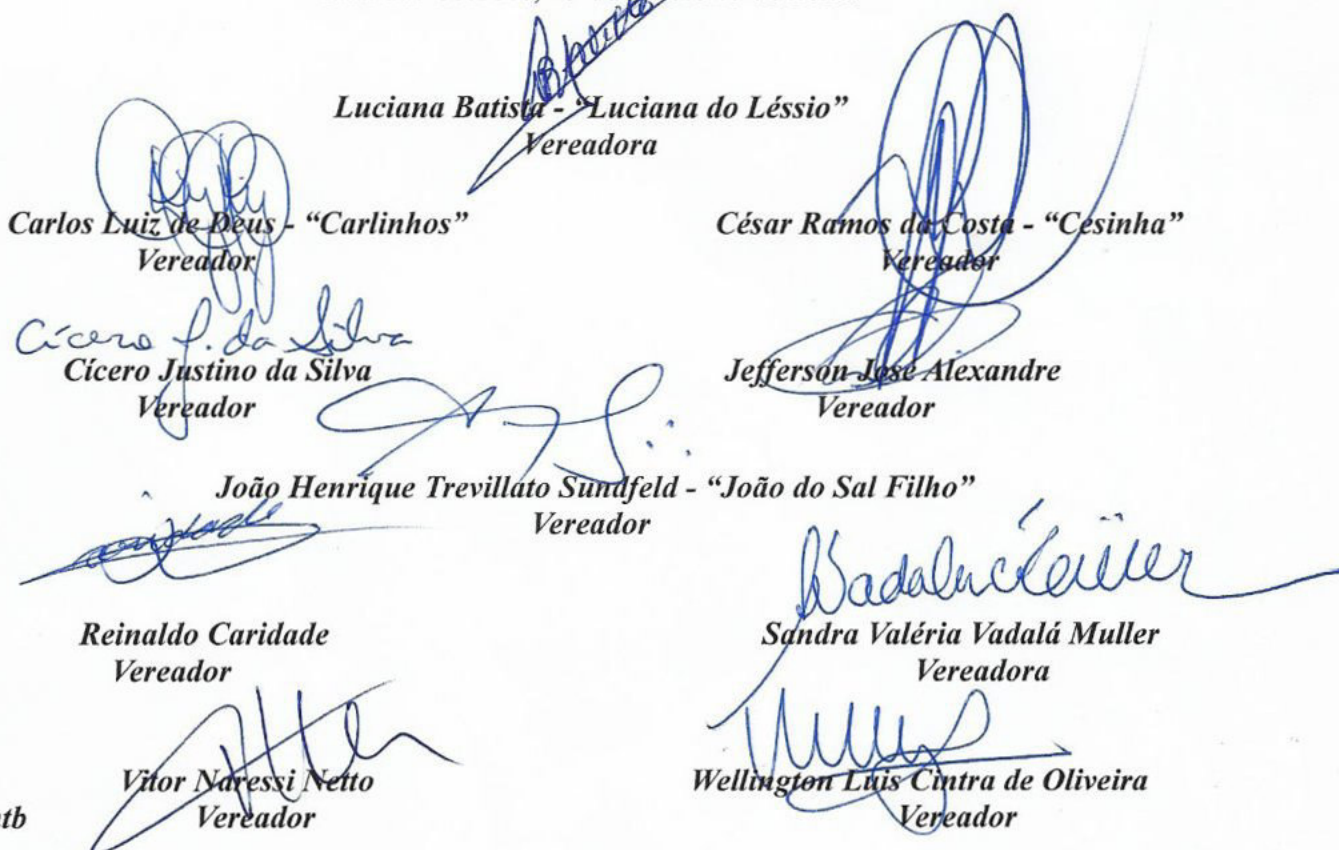 Luciana Batista - “Luciana do Léssio”
Vereadora
Carlos Luiz de Deus - “Carlinhos”
Vereador
César Ramos da Costa - “Cesinha”
Vereador
Cícero J. da Silva
Cícero Justino da Silva
Vereador
Jefferson José Alexandre
Vereador
João Henrique Trevillato Sundfeld - “João do Sal Filho”
Vereador
Reinaldo Caridade
Vereador
Sandra Valéria Vadalá Muller
Vereadora
Vitor Naressi Netto
Vereador
Wellington Luis Cintra de Oliveira
Vereador